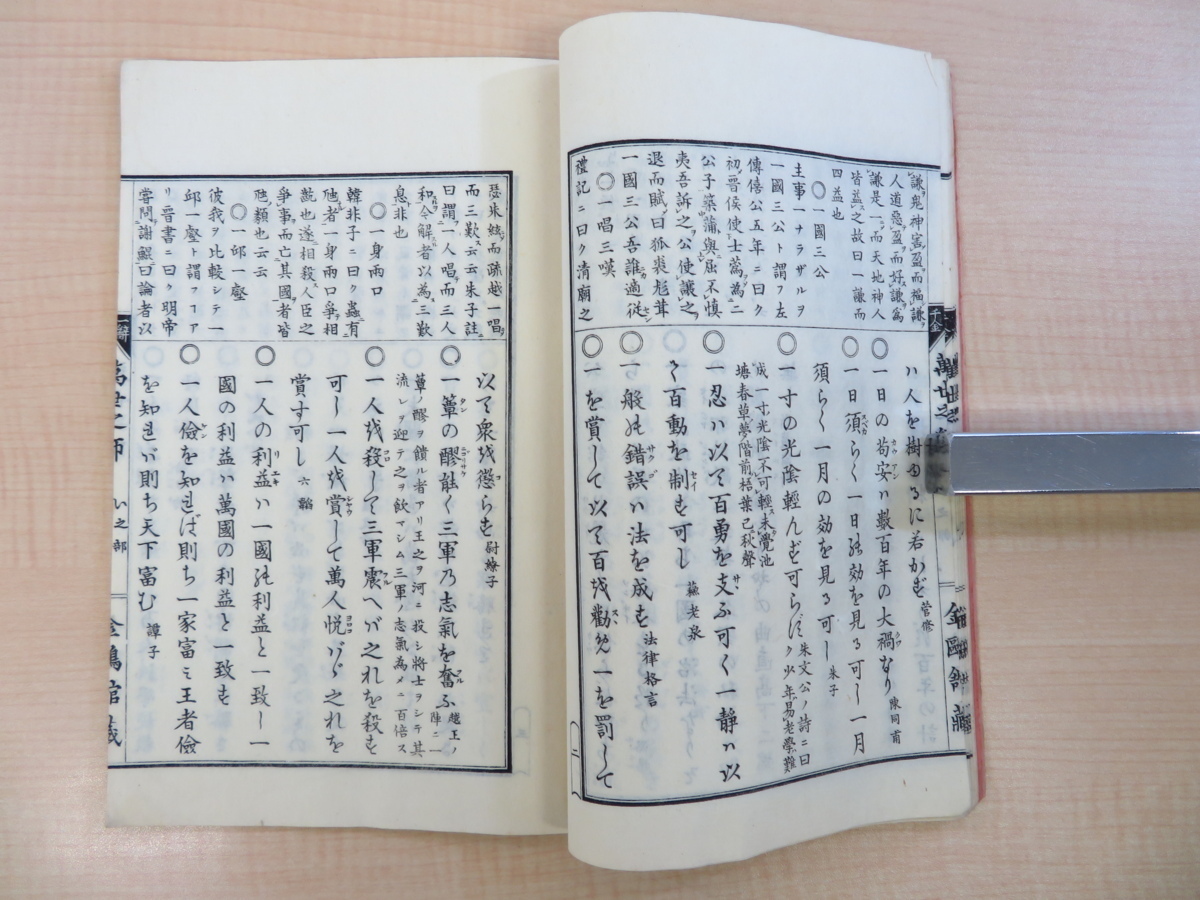 謙鬼神害盈而福謙
人道惡盈而好謙爲
謙是一而天地神人
皆益之故曰一謙而
四益也
〇一國三公
主事一ナラザルヲ
一國三公ト謂フ左
傳僖公五年ニ曰ク
初晋侯使士蔿為二
公子築蒲與屈不慎
夷吾訴之公使讓之
退而賦曰狐裘尨茸
一國三公吾誰適從
〇一唱三嘆
禮記ニ曰ク清廟之
ハ人を樹ゆるに若かず 管修
◎一日の苟安ハ數百年の大禍なり 陳同甫
◎一日須らく一日の効を見る可し一月
須らく一月の効を見る可し 朱子
◎一寸の光陰輕んず可らず 朱文公ノ詩ニ曰ク少年易老學難
成一寸光陰不可輕未覺池
塘春草夢階前梧葉已秋聲
◎一忍ハ以て百勇を支ふ可く一静ハ以
て百動を制す可し 蘇老泉
◎一般の錯誤ハ法を成す 法律格言
◎一を賞して以て百を勸め一を罰して
瑟朱絃而疏越一唱
而三歎云云朱子註
曰謂一人唱而三人
和今解者以為三歎
息非也
〇一身兩口
韓非子ニ曰ク蟲有
虺者一身兩口爭相
齕也遂相殺人臣之
爭事而亡其國者皆
虺類也云云
〇一邱一壑
彼我ヲ比較シテ一
邱一壑ト謂フコアリ
晋書ニ曰ク明帝
嘗問謝鯤曰論者以
以て衆を懲らす 尉繚子
◎一簞の醪能く三軍乃志氣を奮ふ 越王ノ陣ニ一
簞ノ醪ヲ饋ル者アリ王之ヲ河ニ投シ將士ヲシテ其
流レヲ迎テ之ヲ飲マシム三軍ノ志氣為メニ百倍ス
◎一人を殺して三軍震へバ之れを殺す
可し一人を賞して萬人悦バゞ之れを
賞す可し 六韜
◎一人の利益ハ一國の利益と一致し一
國の利益ハ萬國の利益と一致す
◎一人儉を知れば則ち一家富ミ王者儉
を知れバ則ち天下富む 譚子
萬世之師 い之部